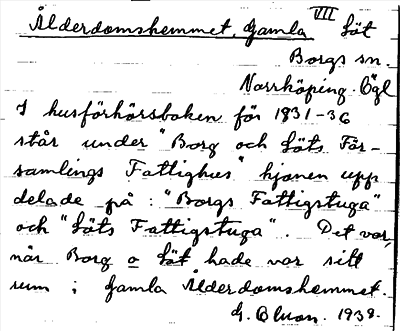 VII
Ålderdomshemmet, Gamla Löt
Borgs sn.
Norrköping. Ögl
I husförhörsboken för 1831-36
står under "Borg och Löts För-
samlings Fattighus" hjonen upp
delade på: "Borgs Fattigstuga"
och "Löts Fattigstuga". Det var,
när Borg o Löt hade var sitt
rum i Gamla Ålderdomshemmet.
1938.